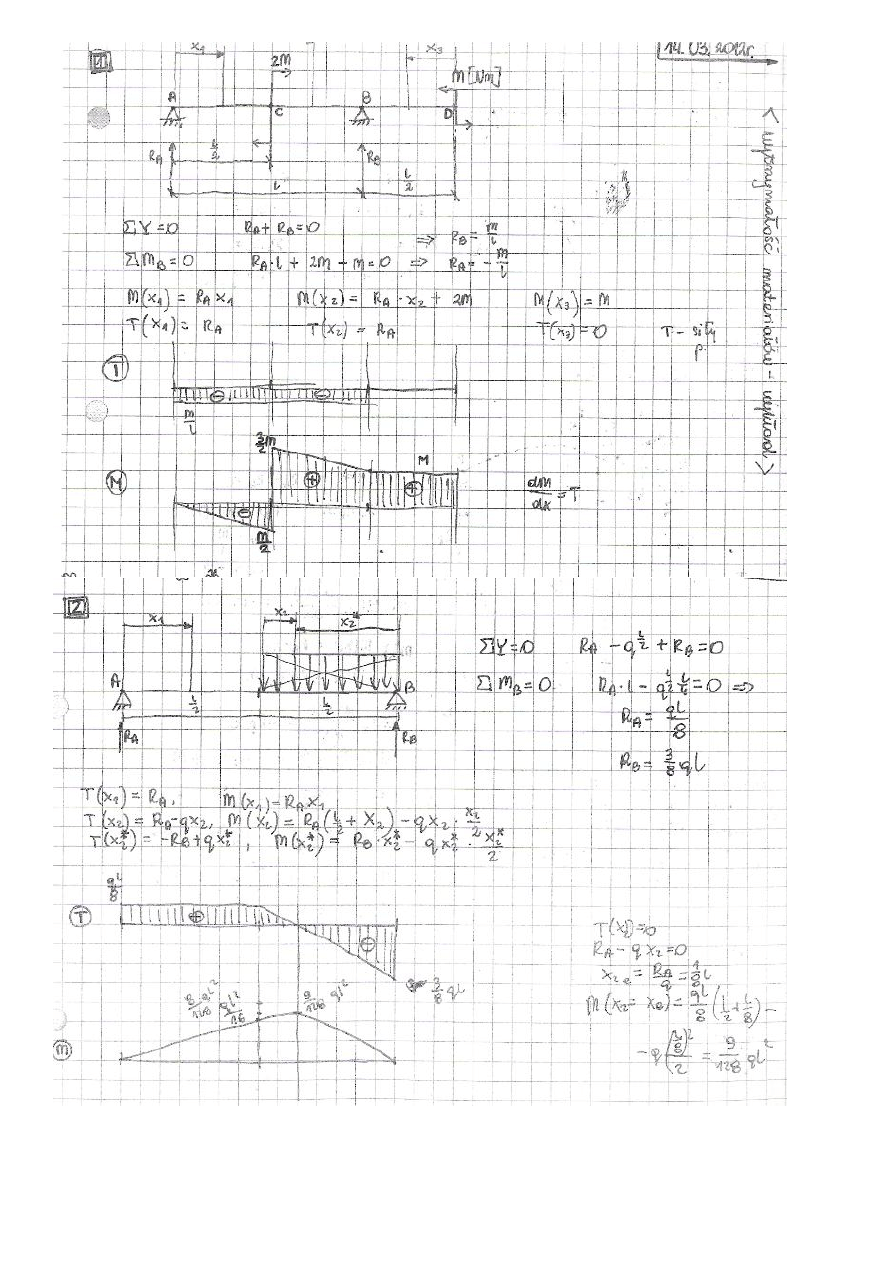 1
14.03.2012r.
x₁
2M
x₃
M [Nm]
A
C
B
D
R_A
l/2
R_B
l
l/2
< wytrzymałość materiałów - wykład >
ΣY=0 R_A + R_B = 0 ⇒ R_B = M/l
ΣM_B = 0 R_A·l + 2M - M = 0 ⇒ R_A = - M/l
M(x₁) = R_A x₁ M(x₂) = R_A · x₂ + 2M M(x₃) = M
T(x₁) = R_A T(x₂) = R_A T(x₃) = 0 T - siły p.
T
⊖ ⊖
M/l
3/2 M
M
M
⊕ ⊕
⊖
M/2
dM/dx = T
2
x₁
x₂
x₂*
A
l/2
l/2
B
R_A
R_B
ΣY=0 R_A - q l/2 + R_B = 0
ΣM_B = 0 R_A·l - q l/2 l/4 = 0 ⇒
R_A = ql/8
R_B = 3/8 ql
T(x₁) = R_A, M(x₁) = R_A x₁
T(x₂) = R_A - qx₂, M(x₂) = R_A (l/2 + x₂) - qx₂ · x₂/2
T(x₂*) = -R_B + qx₂*, M(x₂*) = R_B · x₂* - qx₂* · x₂*/2
ql/8
T
⊕
⊖
3/8 ql
8/128 ql²
ql²/16
9/128 ql²
M
T(x)=0
R_A - qx₂ = 0
x₂ₑ = R_A/q = 1/8 l
M(x₂ = xₑ) = ql/8 (l/2 + l/8) -
- q (l/8)²/2 = 9/128 ql²